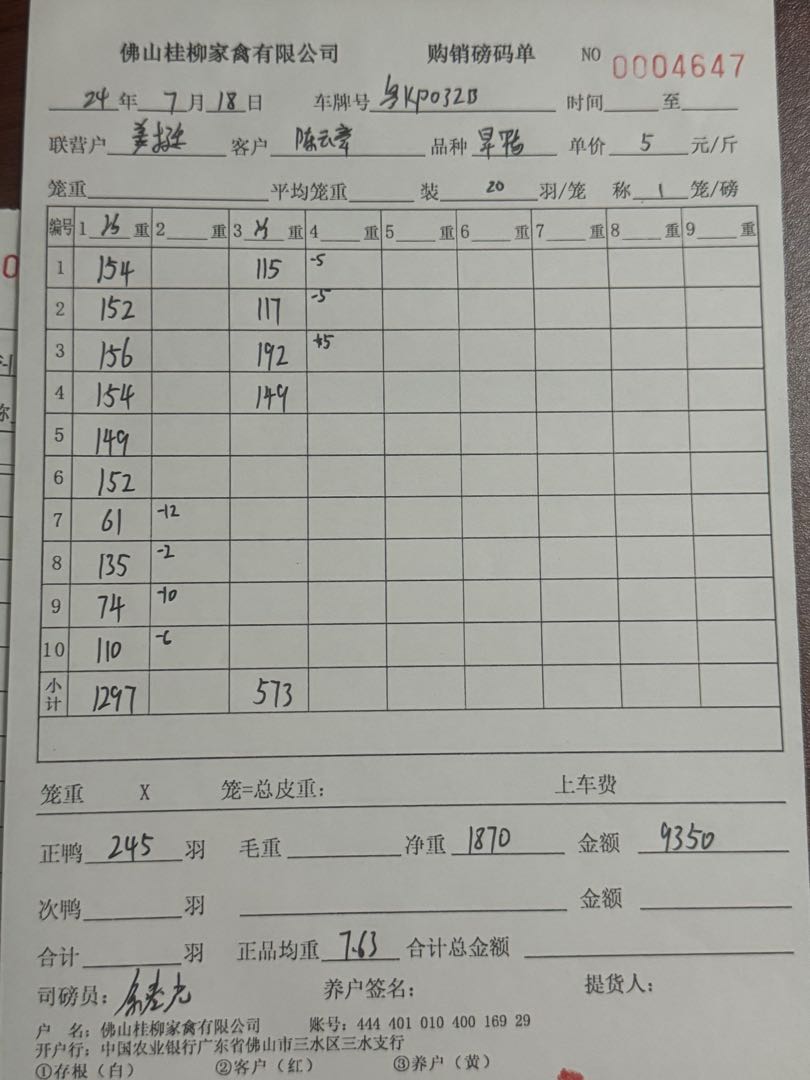 佛山桂柳家禽有限公司 购销磅码单 NO 0004647
24 年 7 月 18 日 车牌号 粤KP032B 时间 至
联营户 客户 陈云章 品种 旱鸭 单价 5 元/斤
笼重 平均笼重 装 20 羽/笼 称 1 笼/磅
编号 1 重 2 重 3 重 4 重 5 重 6 重 7 重 8 重 9 重
1 154 115 -5
2 152 117 -5
3 156 192 +5
4 154 149
5 149
6 152
7 61 -12
8 135 -2
9 74 -10
10 110 -6
小计 1297 573
笼重 X 笼=总皮重: 上车费
正鸭 245 羽 毛重 净重 1870 金额 9350
次鸭 羽 金额
合计 羽 正品均重 7.63 合计总金额
司磅员: 养户签名: 提货人:
户 名: 佛山桂柳家禽有限公司 账号: 444 401 010 400 169 29
开户行: 中国农业银行广东省佛山市三水区三水支行
①存根(白) ②客户(红) ③养户(黄)